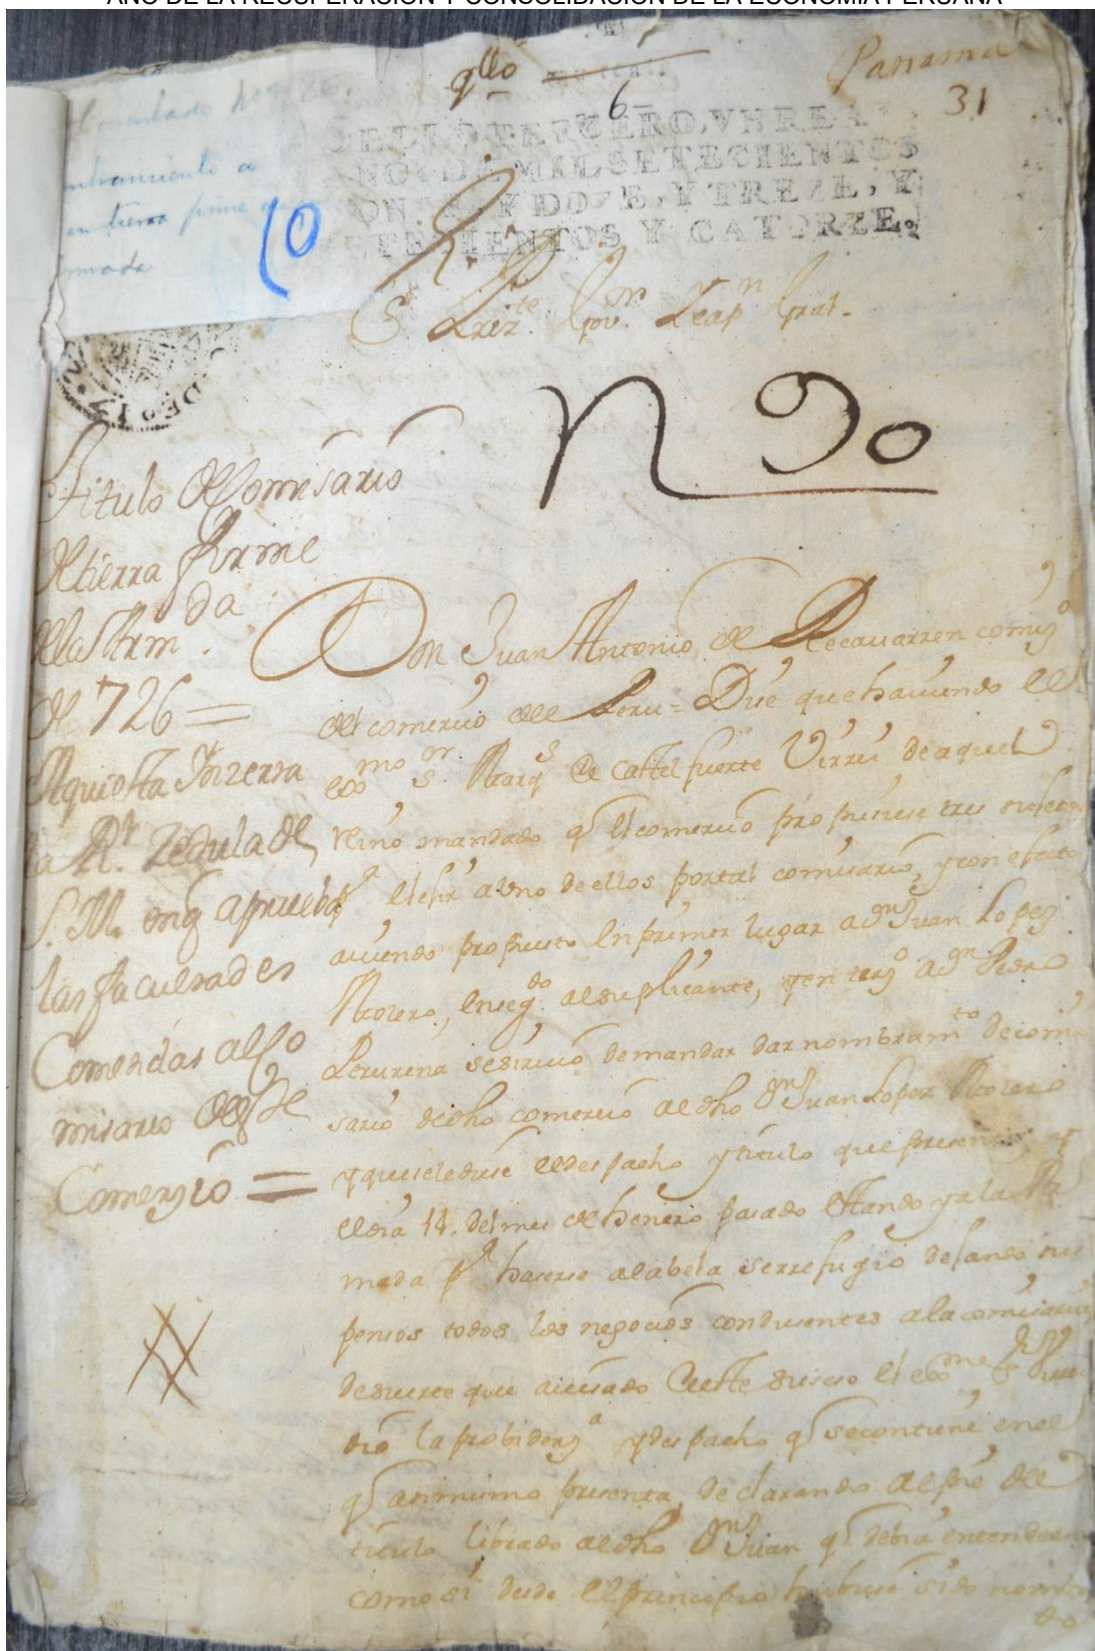 AÑO DE LA RECUPERACIÓN Y CONSOLIDACIÓN DE LA ECONOMÍA PERUANA
qllo
6
Panama
31
Consulado
SELLO TERCERO, VN REAL,
AÑO DE MIL SETECIENTOS
ONZE, Y DOZE, Y TREZE, Y
SETECIENTOS Y CATORZE.
nombramiento a
en tierra firme
armada
10
S. Prez.te Gov.or y Cap.n Gral.
N 20
Titulo de Comisario
de tierra firme
de la Arm.da
de 726 =
Aqui esta Inzerta
la R.l Zedula de
S. M. en q aprueba
las facultades
Comeridas al Co
misario deste
Comerzio =
Don Juan Antonio de Recavarren comis.o
del comercio del Peru = Dize que haviendo el
exmo s.or Marq.s de Castelfuerte Virrei de aquel
reino mandado q el comercio propusiese tres sujetos
p.a elejir a uno de ellos por tal comisario, y con efecto
aviendo propuesto en primer lugar a d.n Juan Lopez
Molero, en seg.do al suplicante, y en terz.o a d.n Pedro
Perurena se sirvio de mandar dar nombram.to de comi
sario de dho comercio al dho d.n Juan Lopez Molero
y que se le diese el despacho y titulo que presenta, y
el dia 14. del mes de henero pasado estando ya la Ar
mada p.a hacerse a la bela se refugio dejando sus
pensos todos los negocios conducentes a la comisaria
de suerte que avisado de este suceso el exmo s.r Virrei
dio la probidenz.a y despacho q se contiene en el
q asimismo presenta, declarando al pie del
titulo librado al dho d.n Juan q debia entenderse
como si desde el principio hubiese sido nombra
do